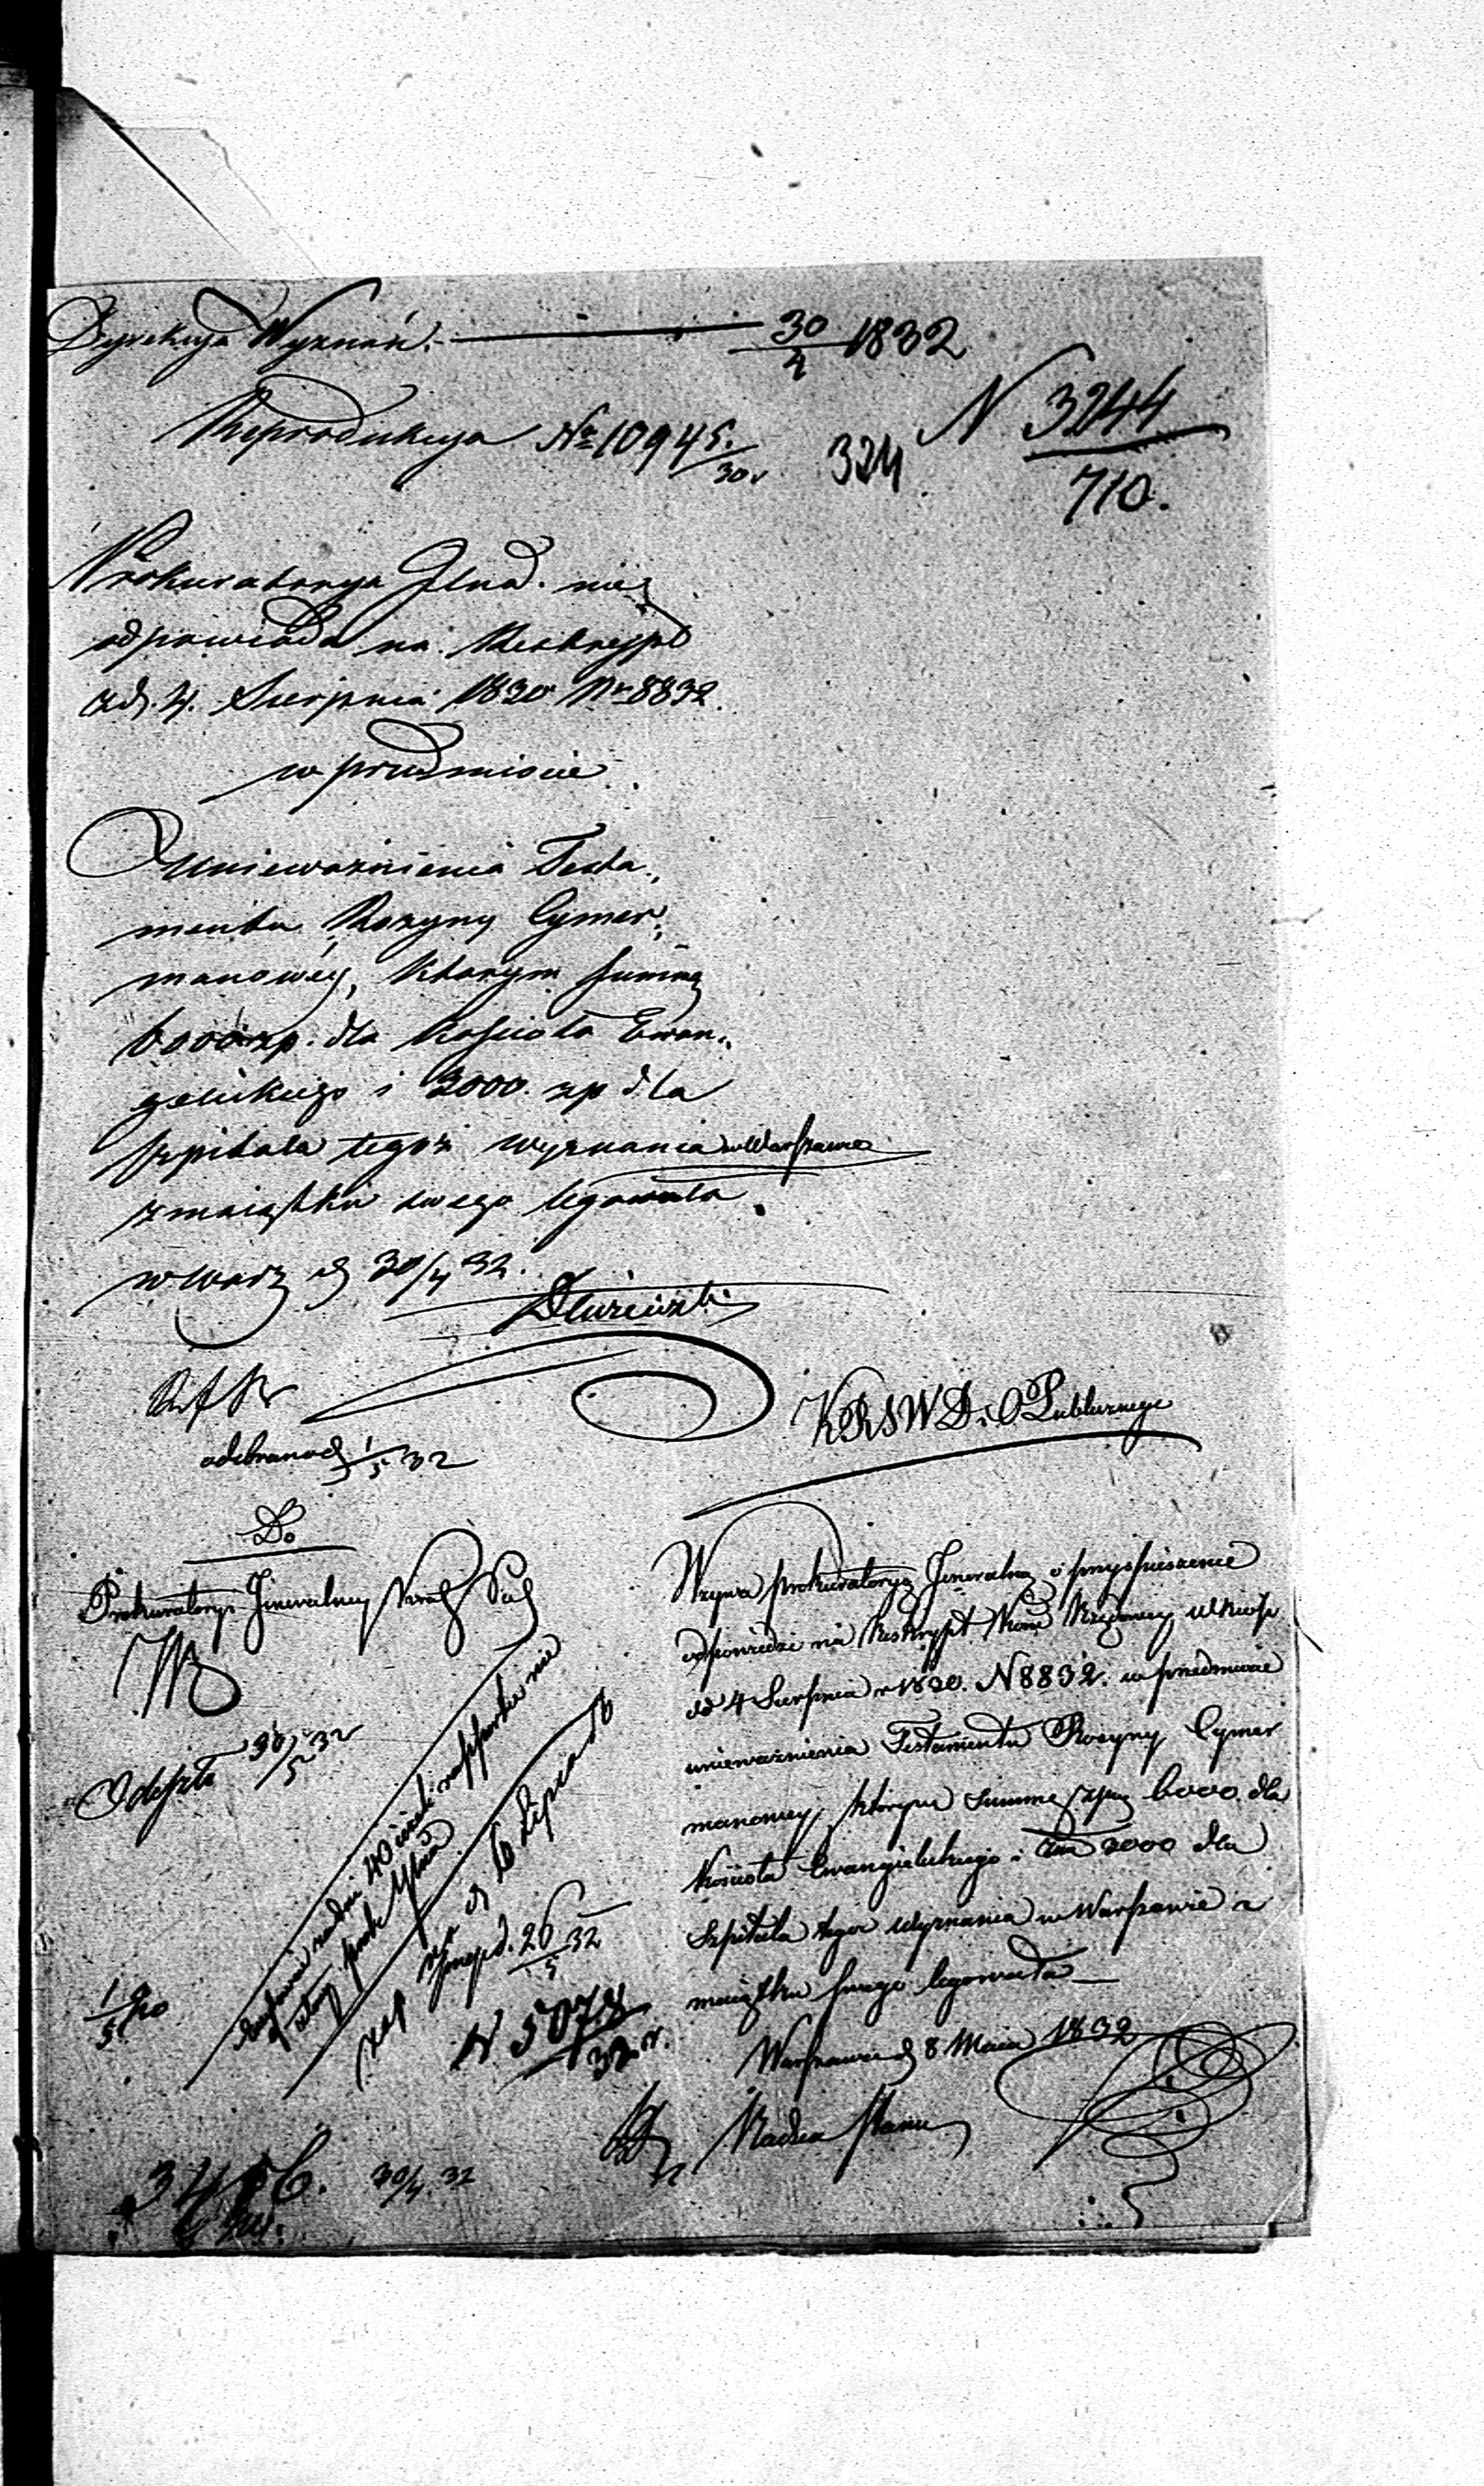 Dyrekcya Wyznań. 30/4 1832
Reprodukcya No 10945./30.
324
N 3244/710.
Prokuratorya Jlna. nie
odpowiada na Reskrypt
z d. 4. Sierpnia 1830 Nr 8832.
w przedmiocie
Unieważnienia Testa„
mentu Rozyny Cymer„
manowéy, którym summę
6000 zp. dla Kościoła Ewan„
gelickiego i 3000. zp dla
szpitala tegoż wyznania w Warszawie
z maiątku swego legowała.
w Warsz d 30/4 32.
odebrano d 1/5 32
KRSWD i O Publicznego
Do
Prokuratoryi Jineralney Król Pol
Wzywa prokuratoryą Jeneralną o przyspieszenie
odpowiedzi na Reskrypt Kom Rządowey
dd 4 Sierpnia r 1830. N 8832. w przedmiocie
unieważnienia Testamentu Rozyny Cymer
manowey, którym summę 6000 dla
Kościoła Ewangielickiego i 3000 dla
Szpitala tegoż wyznania w Warszawie z
maiątku swego legowała
Warszawa d 8 Maia 1832
Radca Stanu
Odeszło 30/5 32
40
d 6 Lipca
d. 26/5 32
N 5078/32 r.
1/5
30/4 32